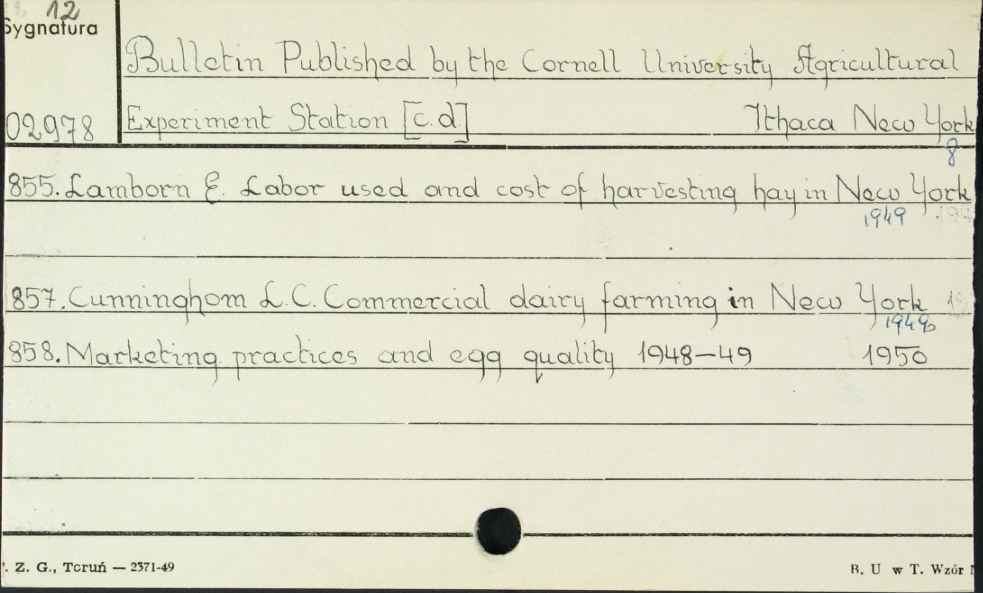 12
Sygnatura
Bulletin Published by the Cornell University Agricultural
02978
Experiment Station [c.d] Ithaca New York
8
855. Lamborn E. Labor used and cost of harvesting hay in New York
1949
857. Cunninghom L.C. Commercial dairy farming in New York
1949
858. Marketing practices and egg quality 1948-49 1950
Z. G., Toruń — 2371-49
B. U w T. Wzór